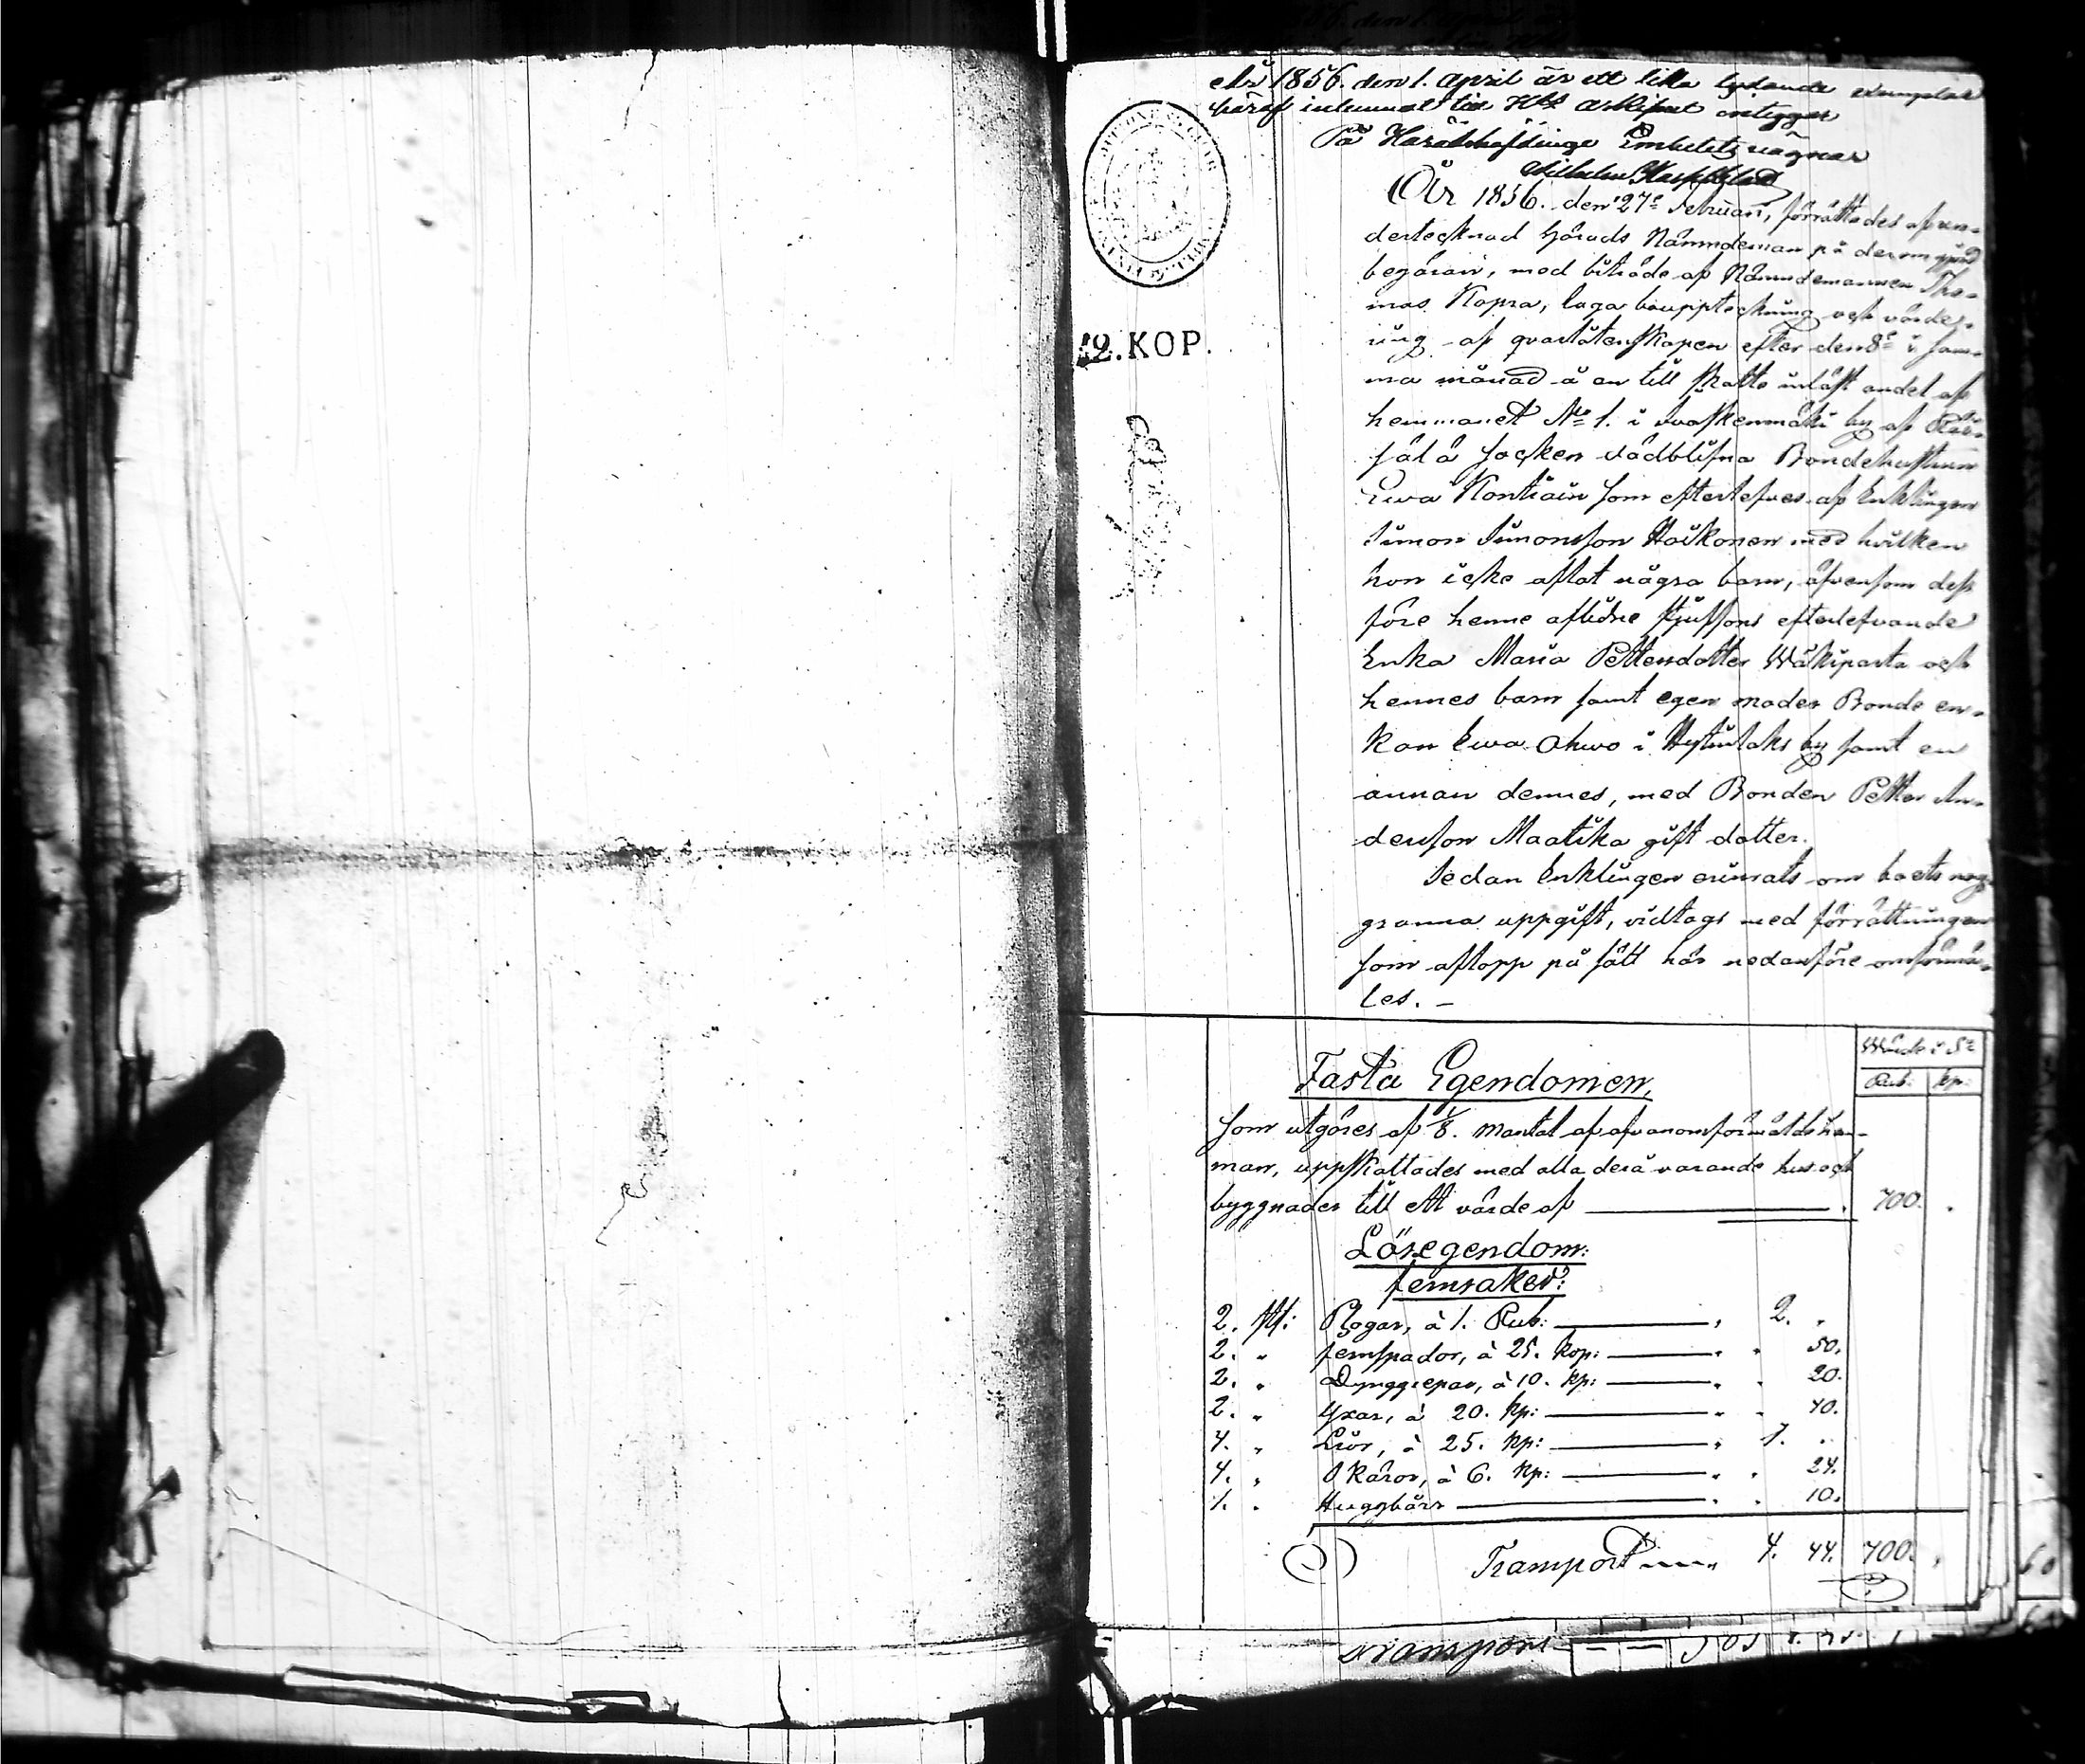 1856. den 1. April är ett lika lydande exemplar
häraf inlemnat till arkivet intygar
På Häradshöfdinge Embetets vägnar
Wilhelm
År 1856. den 27e Februari, förrättades af un-
dertecknad Härads Nämndeman på derom gjord
begäran, med biträde af Nämndemannen Tho-
mas Kopra, laga bouppteckning och värde-
ring af qvarlåtenskapen efter den 8e i sam-
ma månad å en till skatte inlöst andel af
hemmanet No 1. i by af Räi-
sälä socken dödblifna Bondehustrun
Ewa Kontiain som efterlefves af Enklingen
Simon Simonsson Haikonen med hvilken
hon icke aflat några barn, äfvensom dess
före henne aflidne stjufsons efterlefvande
Enka Maria Pettersdotter Wäkiparta och
hennes barn samt egen moder Bonde en-
kan Ewa Ahwo i by samt en
annan dennes, med Bonden Petter An-
dersson Maatika gift dotter.
Sedan Enklingen erinrats om boets nog-
granna uppgift, vidtogs med förrättningen
som aflopp på sätt här nedanföre omförmä-
les. –
Wärde i Sr
Rub. kp:
Fasta Egendomen,
som utgöres af 1/8. mantal af ofvanomförmälde hem-
man, uppskattades med alla derå varande hus och
byggnader till ett värde af 700. .
Lösegendom:
Jernsaker:
2. st: Plogar, à 1. Rub: 2. .
2. " Jernspador, à 25. kop: 50.
2. " Dynggrepar, à 10. kp: 20.
2. " Yxar, à 20. kp: 40.
4. " Liör, à 25. kp: 1. .
4. " Skäror, à 6. kp: 24.
1. " Huggbörr 10.
Transport 4. 44. 700. .
12.KOP.
Transport